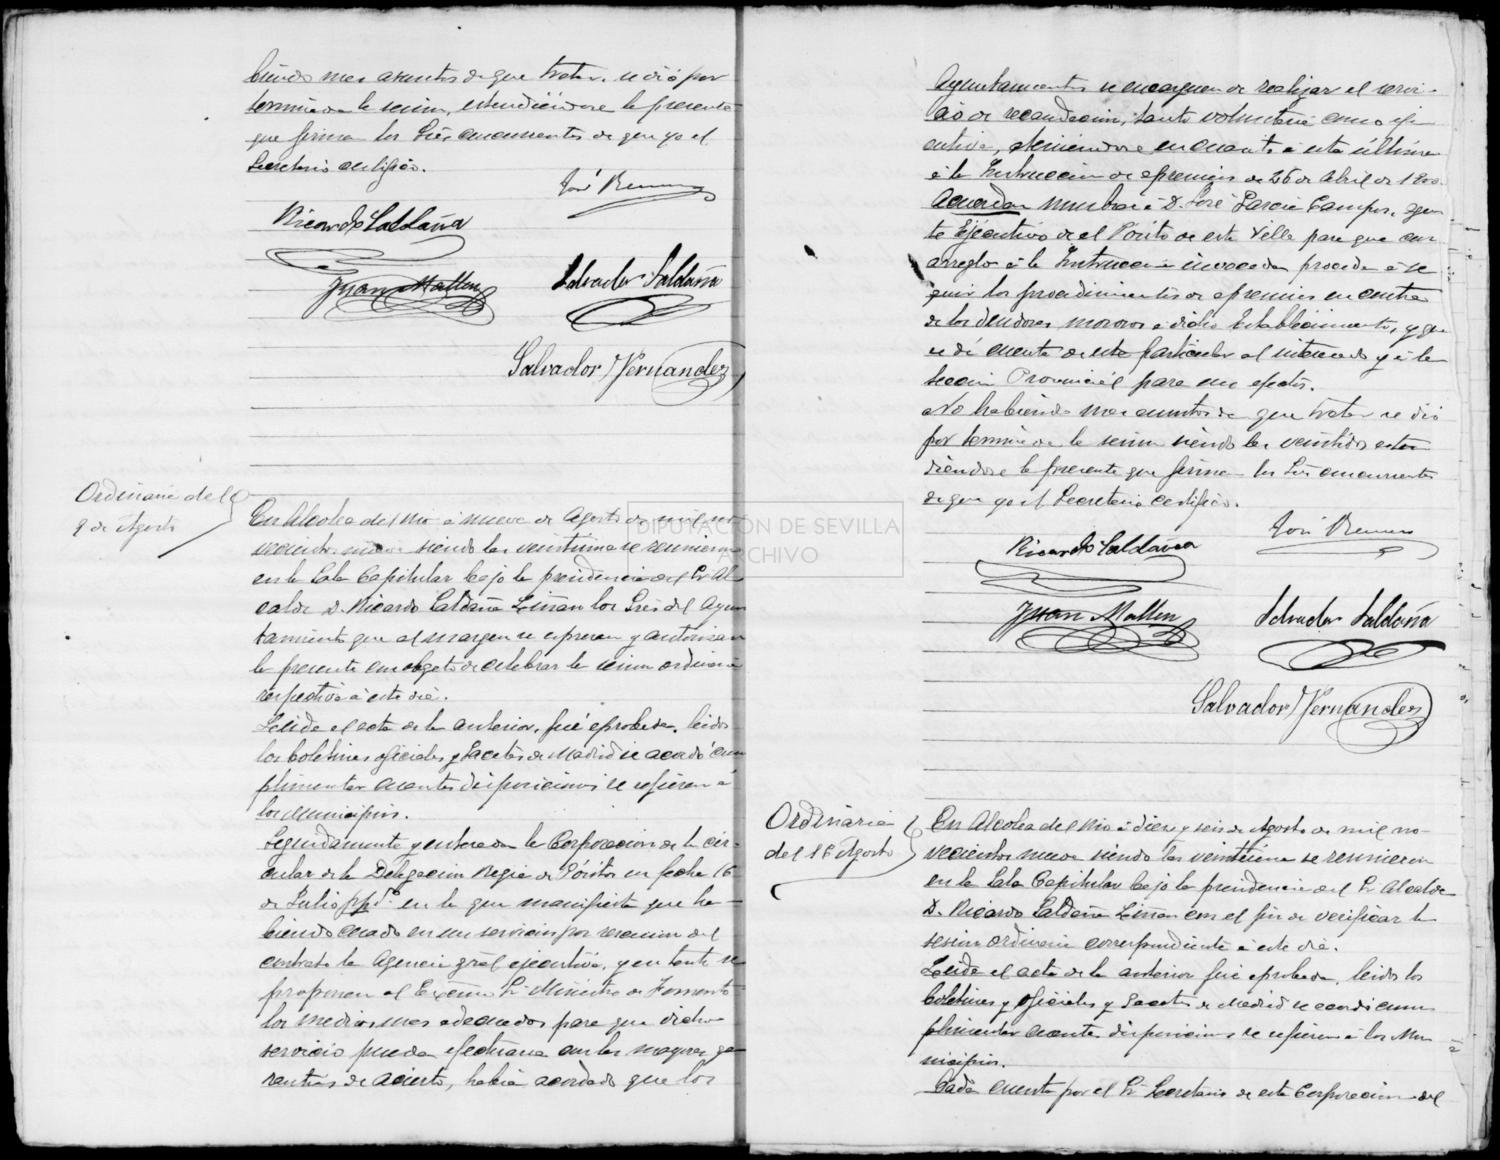 biendo mas asuntos de que tratar, se dió por
terminada la sesion, estendiéndose la presente
que firman los Sres concurrentes de que yo el
Secretario certifico.
José
Ricardo Saldaña
Juan Mallen
Salvador Saldaña
Salvador Fernandez
Ordinaria del
9 de Agosto
En Alcolea del Rio á nueve de Agosto de mil no
vecientos nueve siendo las veintiuna se reunieron
en la Sala Capitular bajo la presidencia del Sr Al
calde D. Ricardo Saldaña Liñan los Sres del Ayun
tamiento que al margen se espresan y autorizan
la presente con objeto de celebrar la sesion ordinaria
respectiva á este dia.
Leida el acta de la anterior, fué aprobada, leidos
los boletines oficiales y Gacetas de Madrid se acordó cum
plimentar cuantas disposiciones se refieren á
los Municipios.
Seguidamente y enterada la Corporacion de la cir-
cular de la Delegacion Regia de Pósitos su fecha 16
de Julio ppdo. en la que manifiesta que ha-
biendo cesado en su servicio por rescision del
contrato la Agencia gral ejecutiva, y en tanto se
proponen al Excmo Sr Ministro de Fomento
los medios mas adecuados para que dicho
servicio pueda efectuarse con las mayores ga-
rantias de acierto, habia acordado que los
Ayuntamientos se encarguen de realizar el servi-
cio de recaudacion, tanto voluntaria como eje
cutiva, ateniendose en cuanto á esta última
á la Instruccion de apremios de 26 de Abril de 1900.
Acuerdan nombrar á D. José Garcia Campos, agen
te Ejecutivo de el Pósito de esta Villa para que con
arreglo á la Instruccion invocada proceda á se
guir los procedimientos de apremios en contra
de los deudores morosos á dicho Establecimiento, y que
se dé cuenta de este particular al interesado y á la
Seccion Provincial para sus efectos.
No habiendo mas asuntos de que tratar se dió
por terminada la sesion siendo las veintidos esten
diendose la presente que firman los Sres concurrentes
de que yo el Secretario certifico.
José
Ricardo Saldaña
Juan Mallen
Salvador Saldaña
Salvador Fernandez
Ordinaria
del 16 Agosto
En Alcolea del Rio á diez y seis de Agosto de mil no-
vecientos nueve siendo las veintiuna se reunieron
en la Sala Capitular bajo la presidencia del Sr Alcalde
D. Ricardo Saldaña Liñan con el fin de verificar la
sesion ordinaria correspondiente á este dia.
Leida el acta de la anterior fué aprobada, leidos los
boletines oficiales y Gacetas de Madrid se acordó cum
plimentar cuantas disposiciones se refieren á los Mu
nicipios.
Dada cuenta por el Sr Secretario de esta Corporacion del
DIPUTACIÓN DE SEVILLA
ARCHIVO